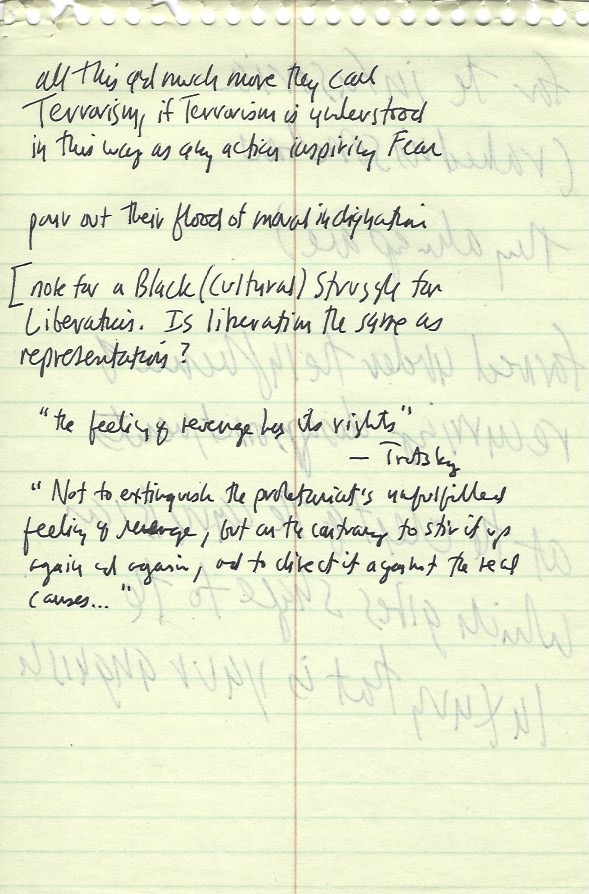 all this and much more they call
Terrorism, if Terrorism is understood
in this way as any action inspiring Fear
pour out their flood of moral indignation
[note for a Black (Cultural) Struggle for
Liberation. Is liberation the same as
representation?
"the feeling of revenge has its rights"
— Trotsky
"Not to extinguish the proletariat's unfulfilled
feeling of revenge, but on the contrary to stir it up
again and again, and to direct it against the real
causes..."